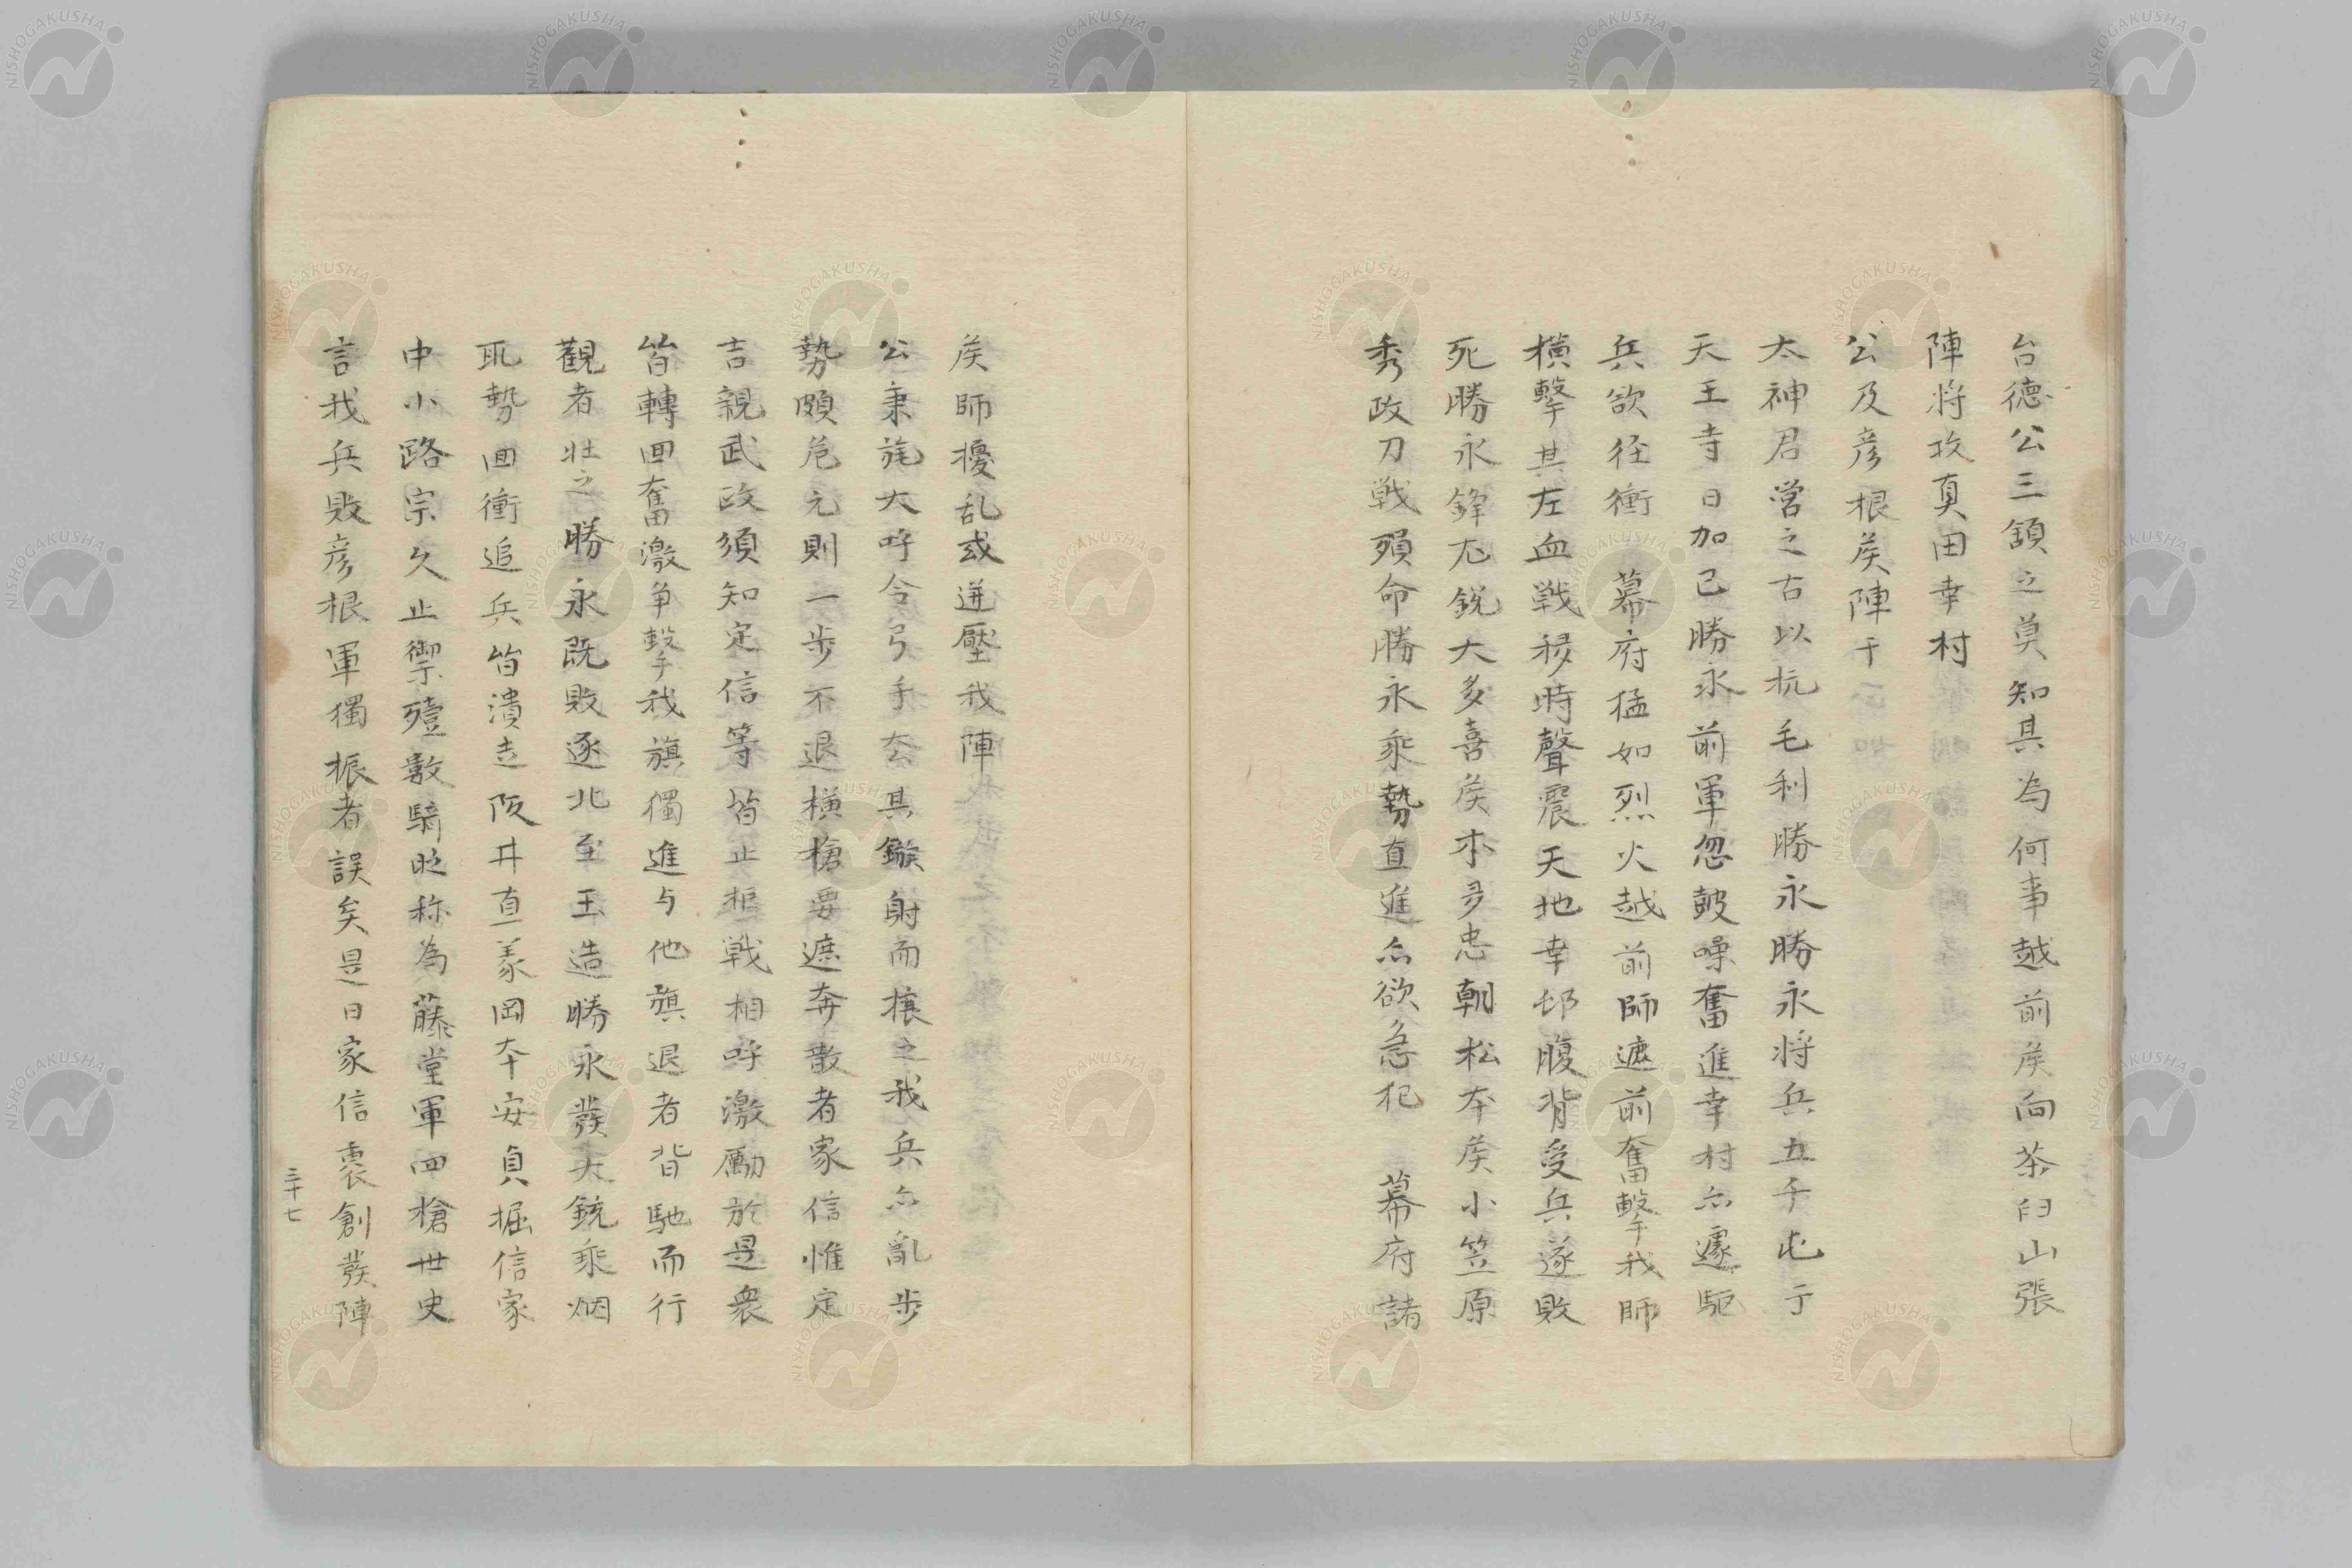 台德公三頷之莫知其為何事越前矦向茶臼山張
陣将攻真田幸村
公及彦根矦陣于
太神君営之古以抗毛利勝永勝永将兵五千屯于
天王寺日加已勝永前軍忽皷噪奮進幸村亦遽駈
兵欲径衝　幕府猛如烈火越前師遮前奮擊我師
横擊其左血戦移時聲震天地幸邨腹背受兵遂敗
死勝永鋒尤銳大多喜矦本多忠朝松本矦小笠原
秀政力戦殞命勝永乘勢直進亦欲急犯　幕府諸
矦師擾乱或迸壓我陣
公秉旄大呼令弓手去其鏃射而攘之我兵亦亂步
勢頗危元則一步不退横槍要遮奔散者家信惟定
吉親武政須知定信等皆止拒戦相呼激勵於是衆
皆轉回奮激争擊我旗獨進与他旗退者背馳而行
觀者壮之勝永既敗逐北至玉造勝永發大銃乘烟
取勢回衝追兵皆潰走阪井直義岡本安貞掘信家
中小路宗久止禦殪敵騎此称為藤堂軍四槍世史
言我兵敗彦根軍獨振者誤矣是日家信裹創發陣
三十七
NISHOGAKUSHA